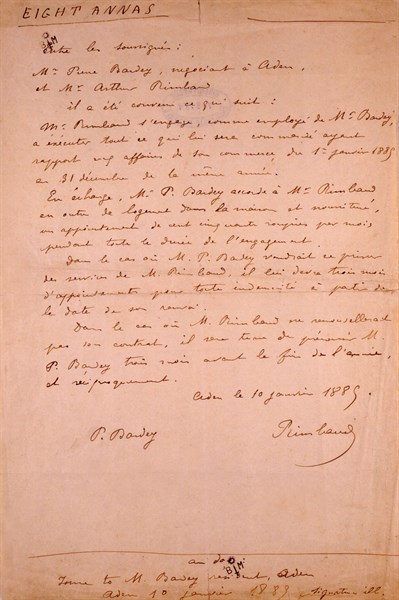 EIGHT ANNAS
Entre les soussignés :
Mr Pierre Bardey, négociant à Aden,
et Mr Arthur Rimbaud
il a été convenu ce qui suit :
Mr Rimbaud s'engage, comme employé de Mr Bardey,
à exécuter tout ce qui lui sera commandé ayant
rapport aux affaires de son commerce, du 1er janvier 1885
au 31 décembre de la même année.
En échange, Mr P. Bardey accorde à Mr Rimbaud
en outre de logement dans la maison et nourriture,
un appointement de cent cinquante roupies par mois,
pendant toute la durée de l'engagement.
Dans le cas où M. P. Bardey voudrait se priver
des services de M. Rimbaud, il lui devra trois mois
d'appointements pour toute indemnité à partir de
la date de son renvoi.
Dans le cas où M. Rimbaud ne renouvellerait
pas son contrat, il sera tenu de prévenir M.
P. Bardey trois mois avant la fin de l'année,
et réciproquement.
Aden le 10 janvier 1885.
P. Bardey Rimbaud
au dos
to M. Bardey Aden
Aden 10 janvier 1885